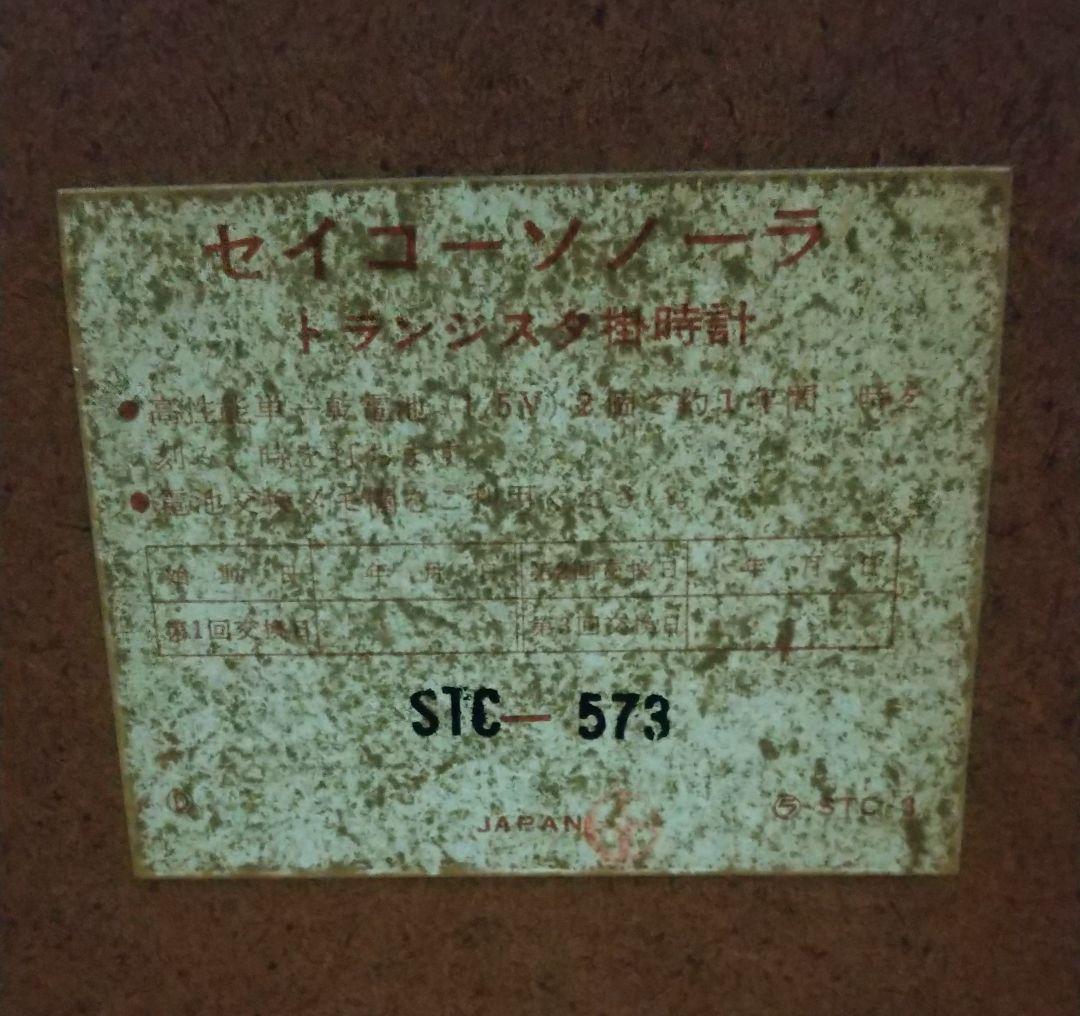 セイコーソノーラ
トランジスタ掛時計
●高性能単一乾電池(1.5V)2個で約1年間 時を
刻み、時を打ちます
●電池交換メモ欄をご利用ください。
始動日 年 月 日 第2回交換日 年 月 日
第1回交換日 第3回交換日
STC-573
JAPAN
STC-3